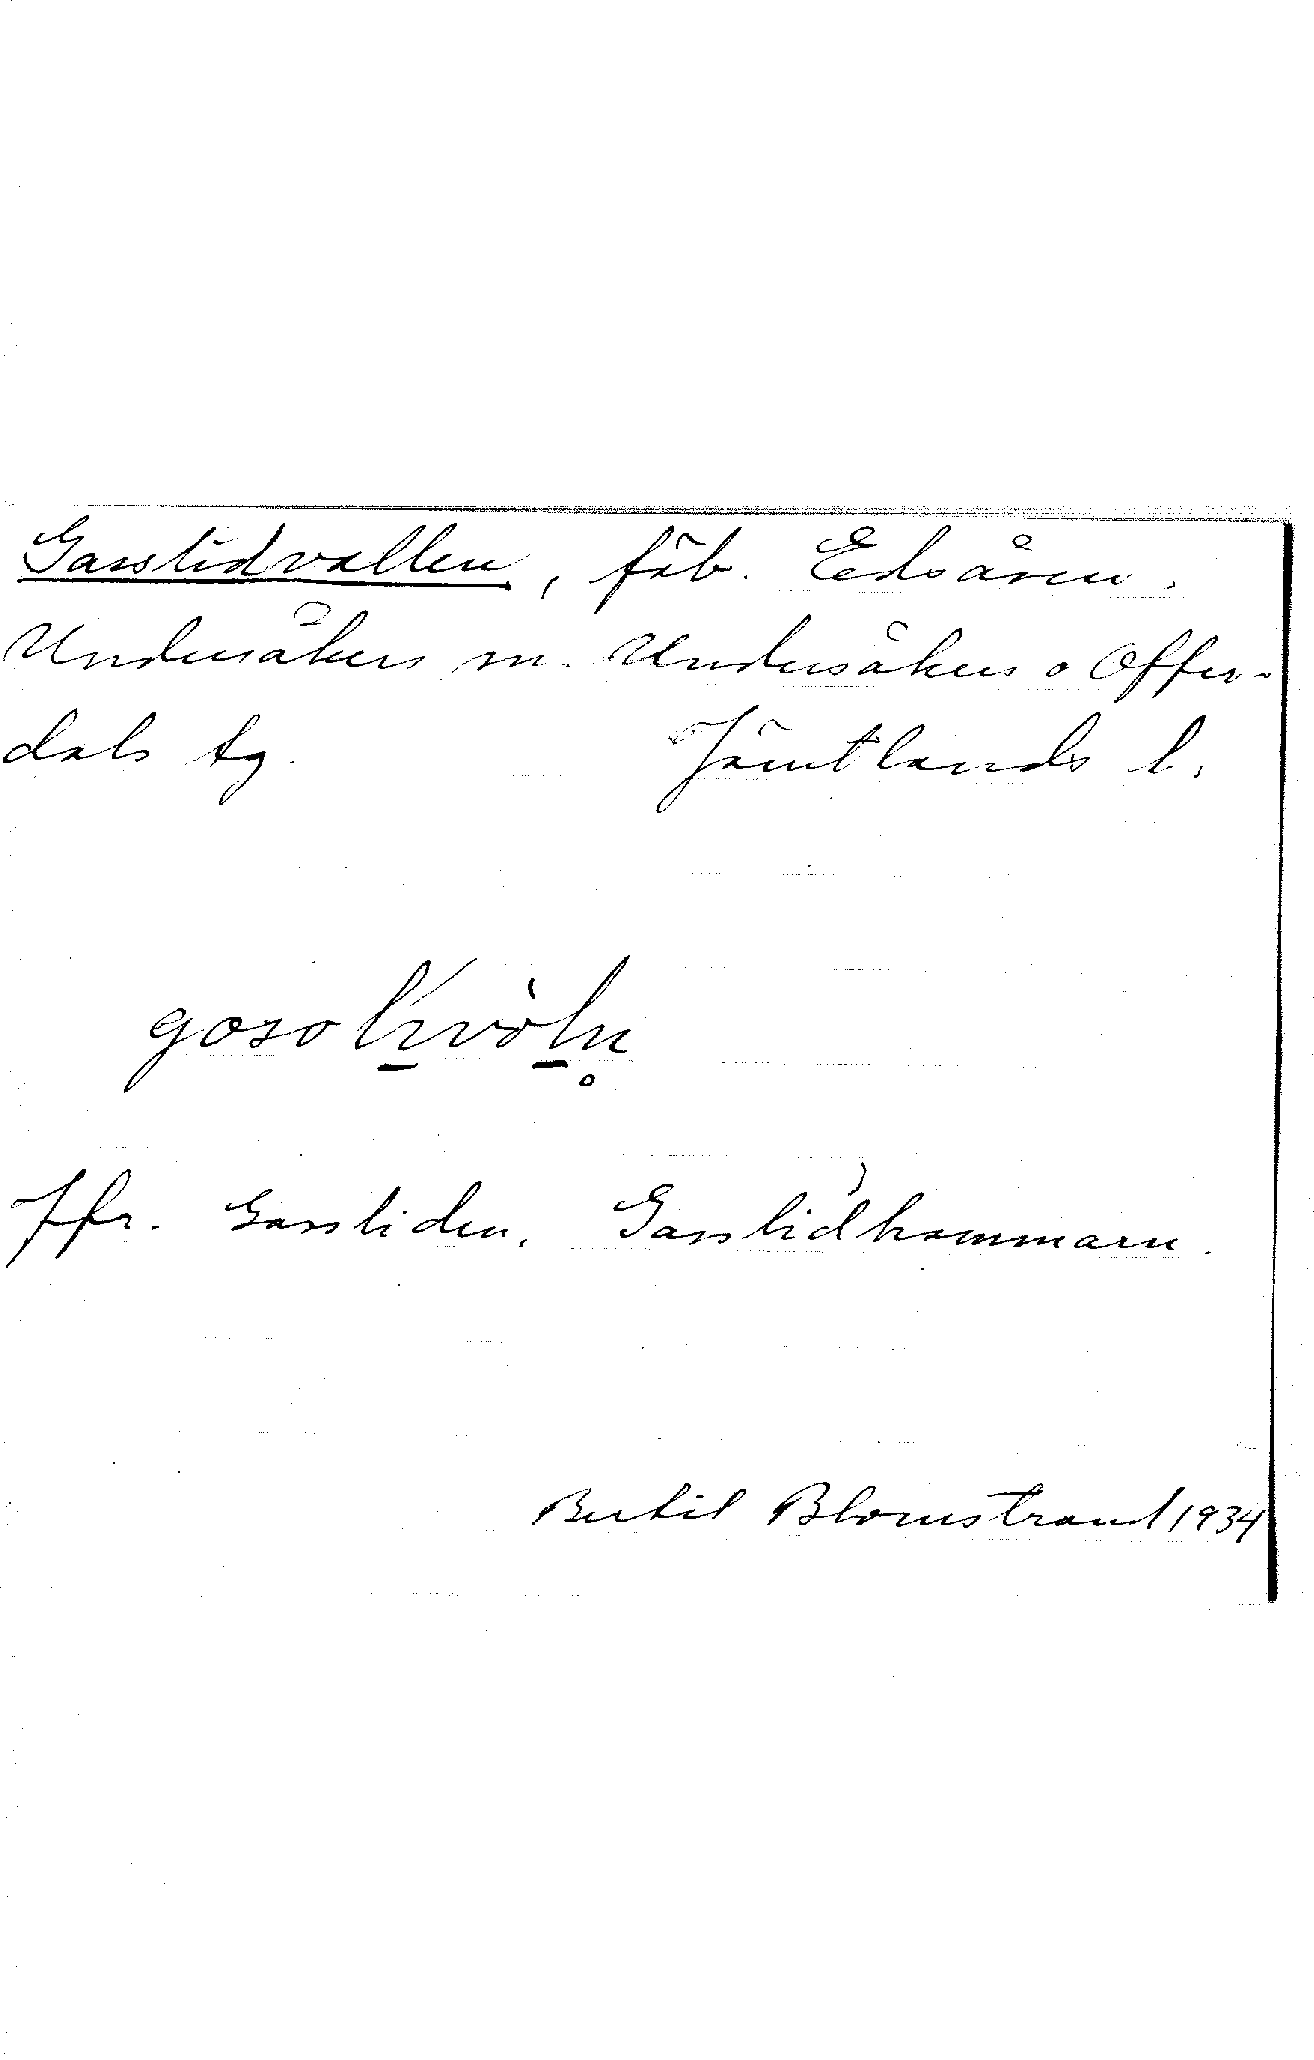 Gasslidvallen, fäb. Edsåsen.
Undersåkers sn. Undersåkers o Offer-
dals tg. Jämtlands l.
Jfr. Gassliden. Gasslidhammarn.
Bertil Blomstrand 1934